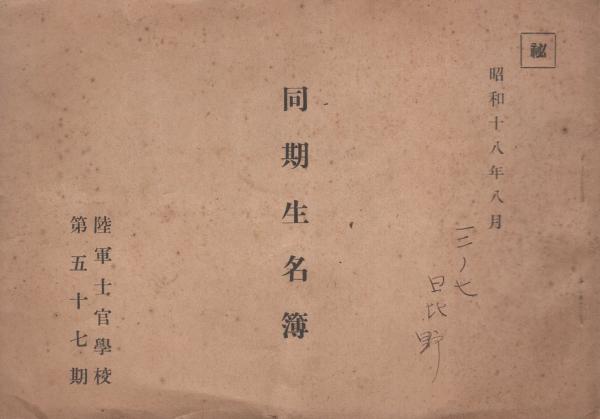 秘
昭和十八年八月
一二ノ七
日比野
同期生名簿
陸軍士官學校
第五十七期